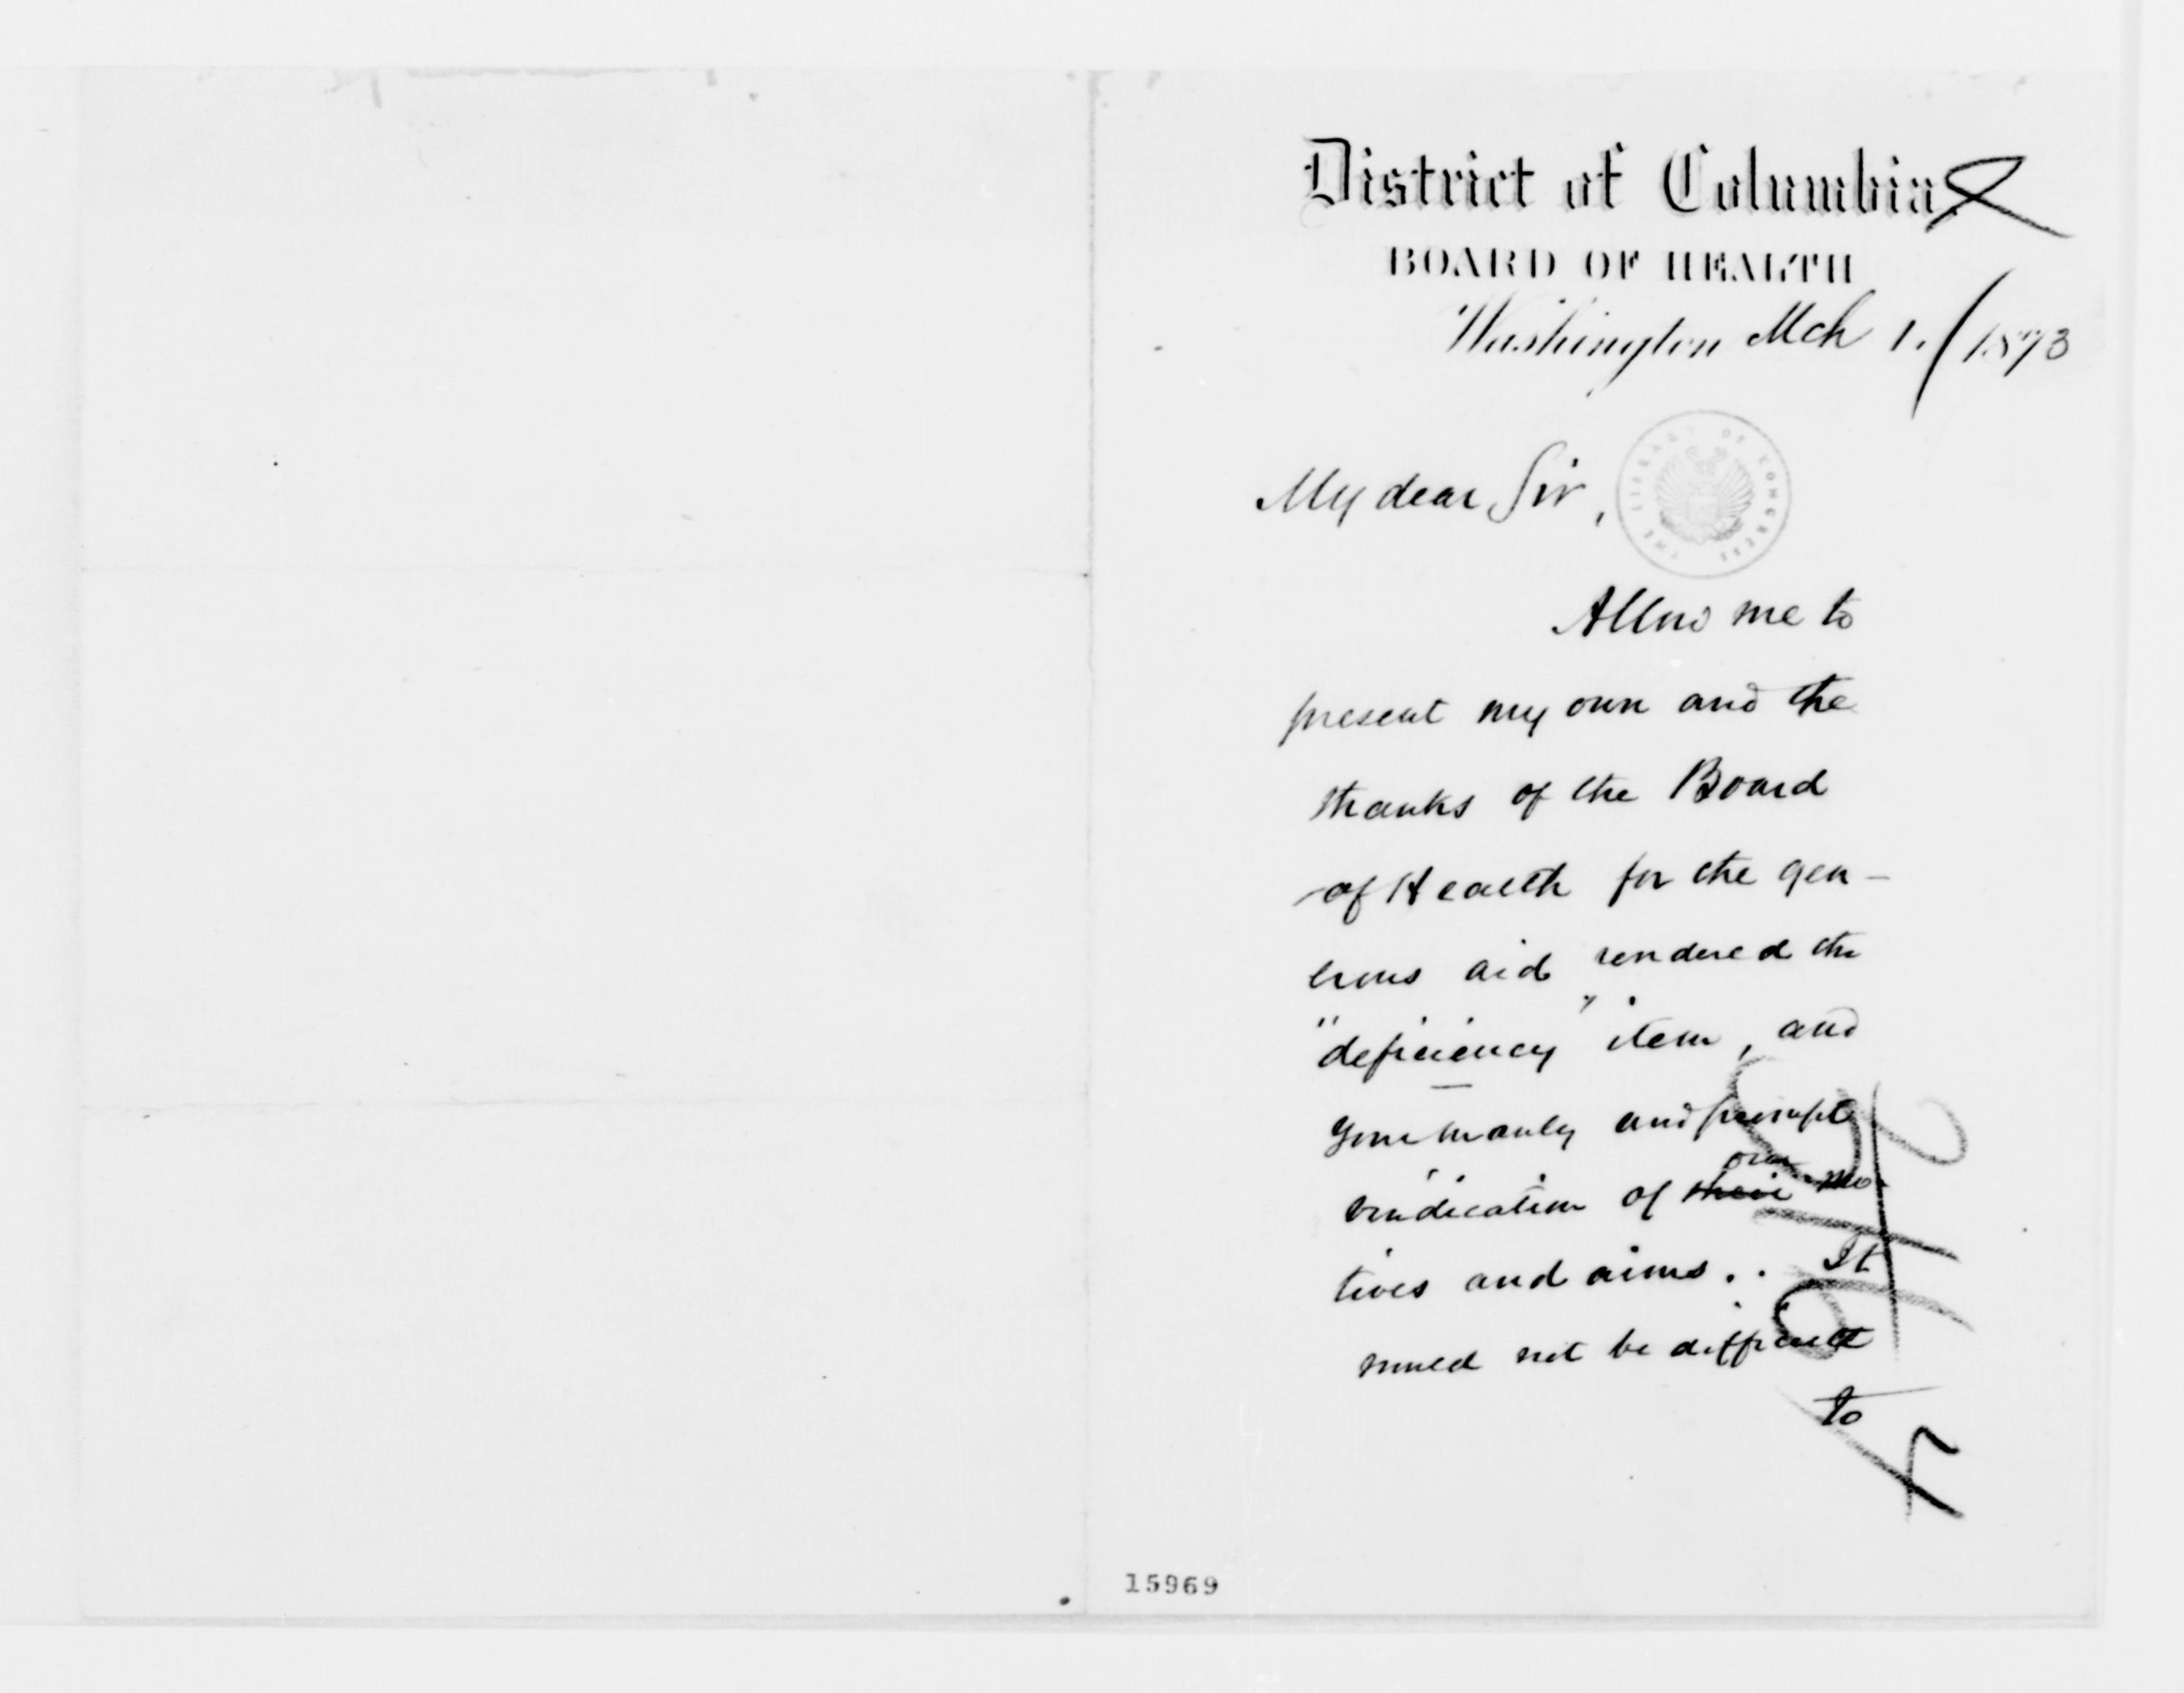 District of Columbia.
BOARD OF HEALTH
Washington Mch 1. / 1873
THE LIBRARY OF CONGRESS
My dear Sir,
Allow me to
present my own and the
thanks of the Board
of Health for the gen-
erous aid rendered the
"deficiency" item, and
your manly and prompt
our
vindication of their mo-
tives and aims.. It
would not be difficult
to
15969